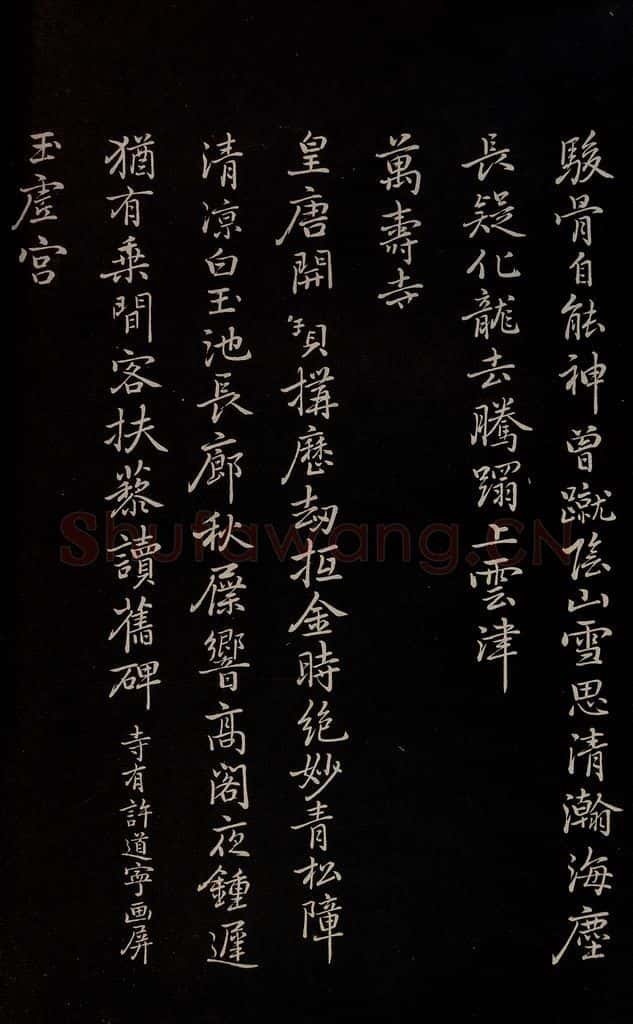 駿骨自能神曾蹴陰山雪思清瀚海塵
長疑化龍去騰躡上雲津
萬壽寺
皇唐開寶搆歷劫抵金時絕妙青松障
清凉白玉池長廊秋屧響高閣夜鍾遲
猶有乗間客扶藜讀舊碑 寺有許道寧画屏
玉虗宫
Shufawang.CN